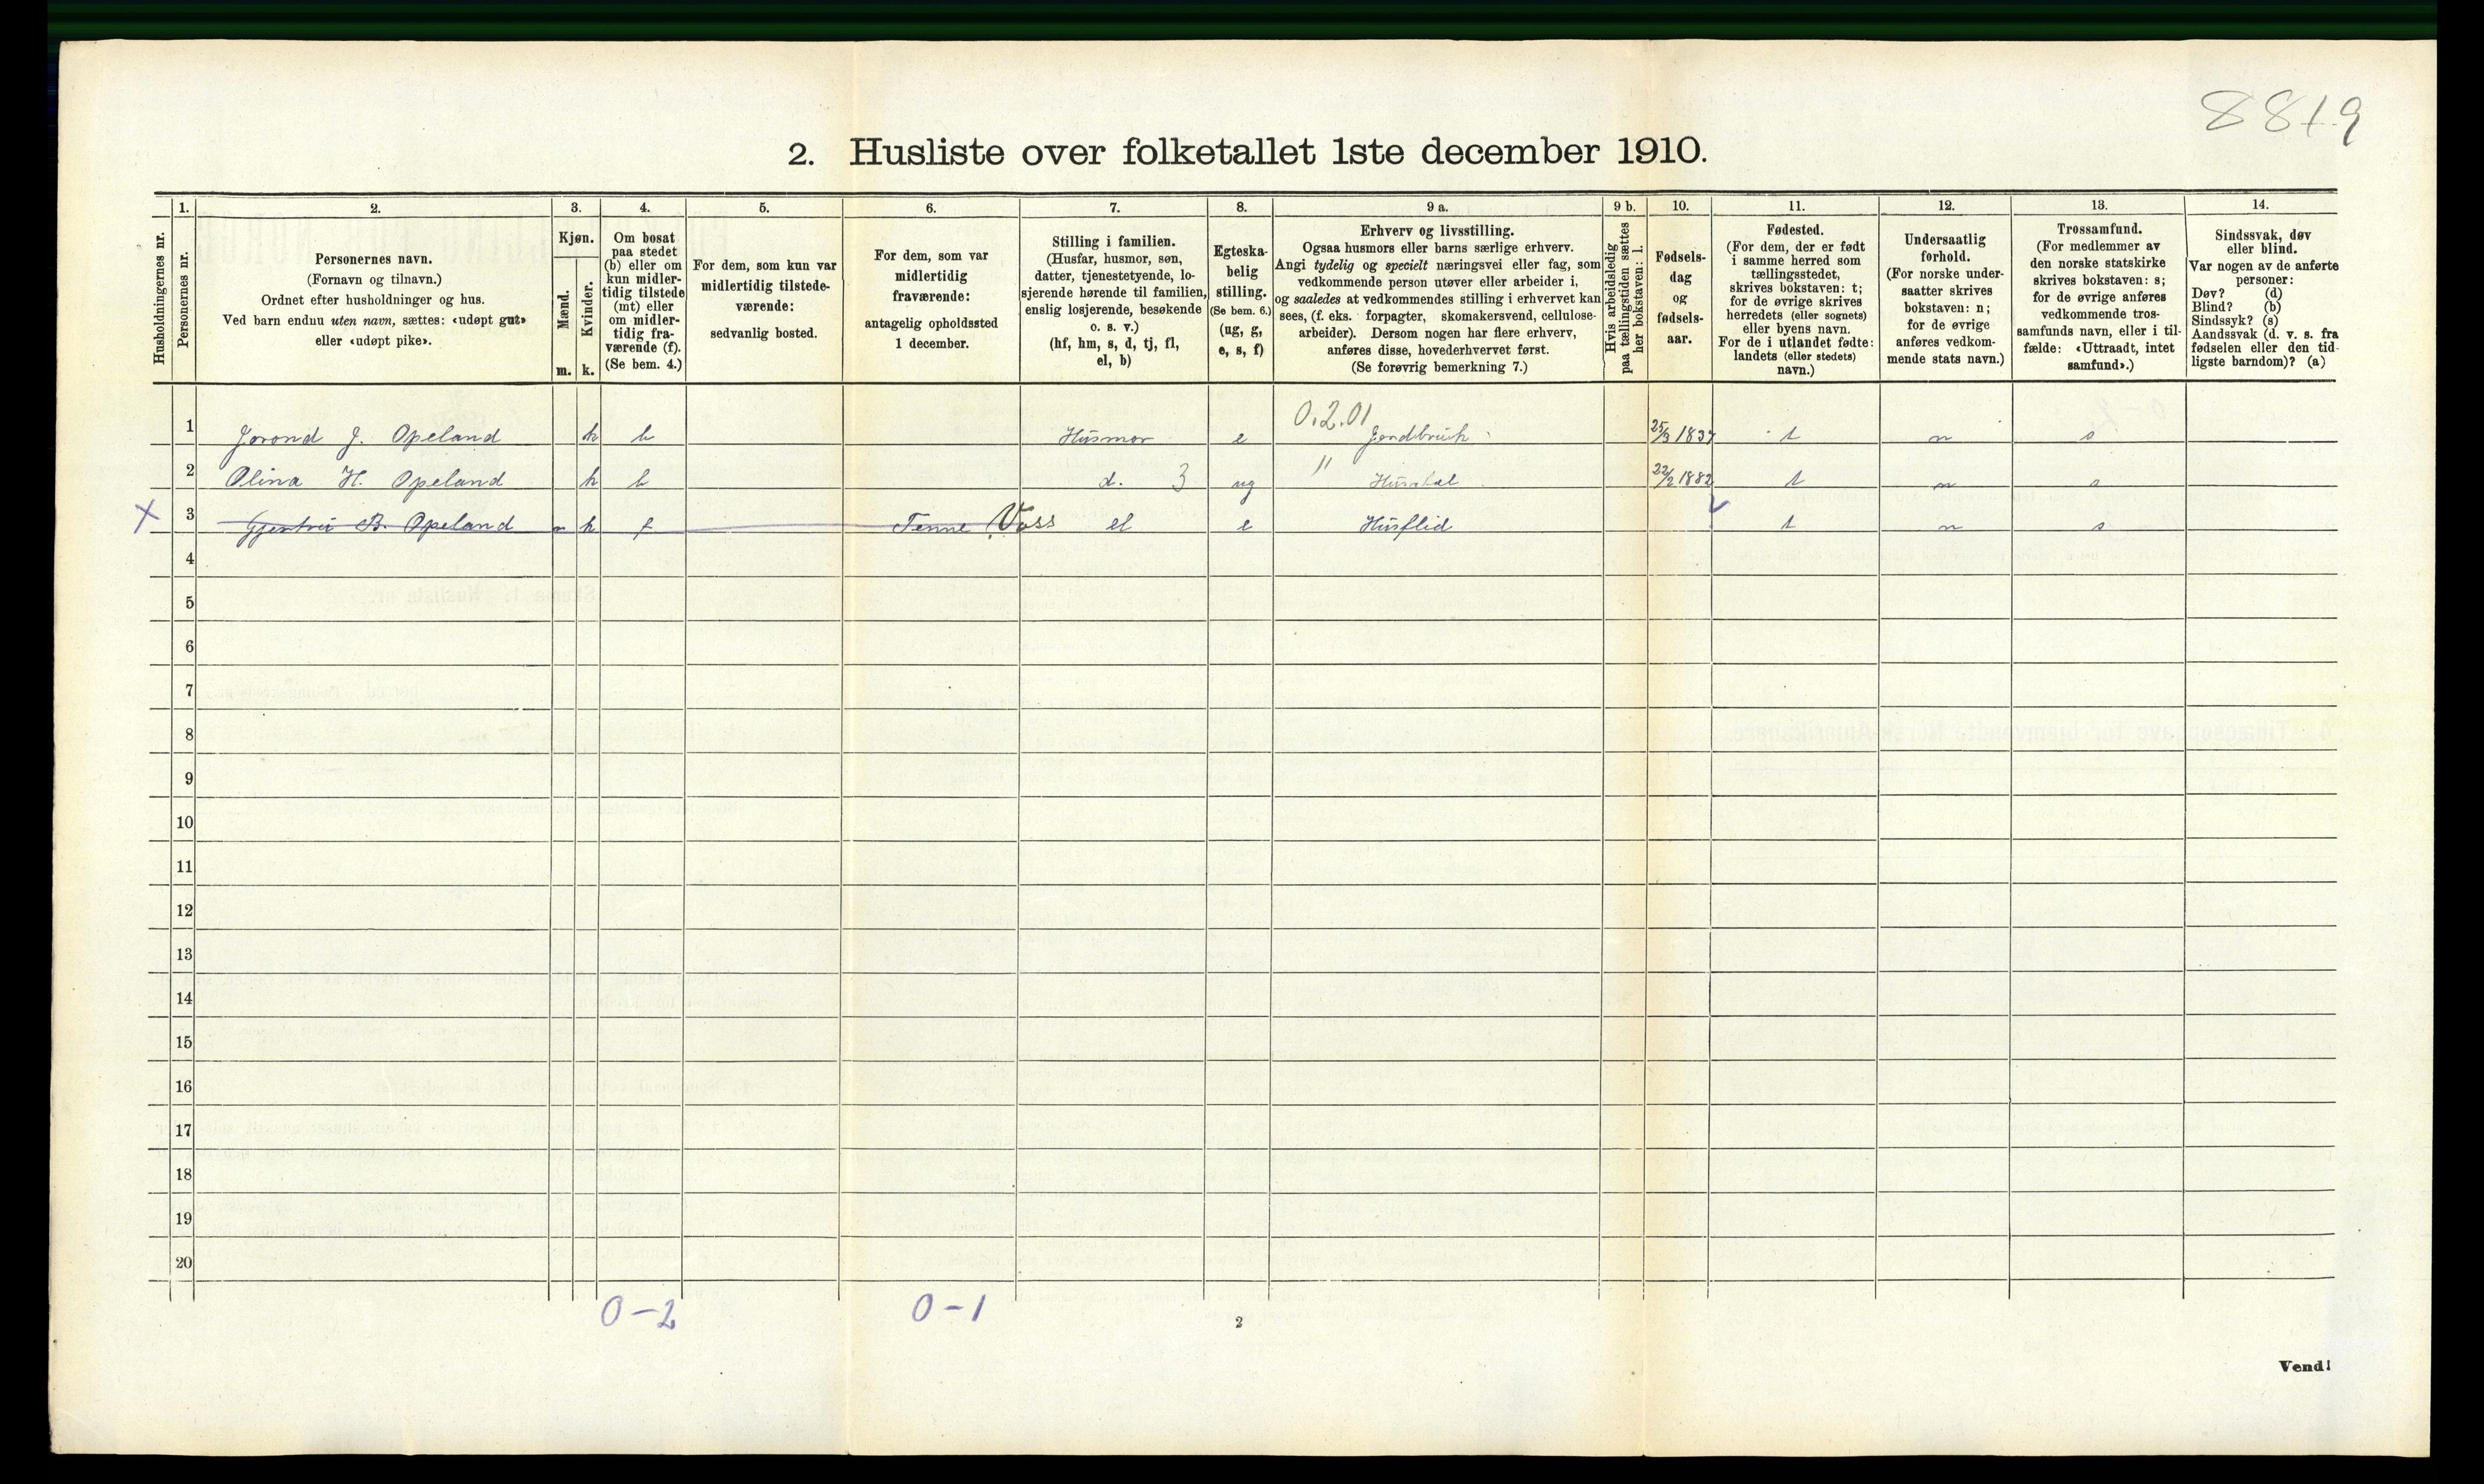 8819
2. Husliste over folketallet 1ste december 1910.
Husholdningernes nr.
1. Personernes nr.
2. Personernes navn.
(Fornavn og tilnavn.)
Ordnet efter husholdninger og hus.
Ved barn endnu uten navn, sættes: «udøpt gut»
eller «udøpt pike».
3. Kjøn.
Mænd. m.
Kvinder. k.
4. Om bosat
paa stedet
(b) eller om
kun midler-
tidig tilstede
(mt) eller
om midler-
tidig fra-
værende (f).
(Se bem. 4.)
5. For dem, som kun var
midlertidig tilstede-
værende:
sedvanlig bosted.
6. For dem, som var
midlertidig
fraværende:
antagelig opholdssted
1 december.
7. Stilling i familien.
(Husfar, husmor, søn,
datter, tjenestetyende, lo-
sjerende hørende til familien,
enslig losjerende, besøkende
o. s. v.)
(hf, hm, s, d, tj, fl,
el, b)
8. Egteska-
belig
stilling.
(Se bem. 6.)
(ug, g,
e, s, f)
9 a. Erhverv og livsstilling.
Ogsaa husmors eller barns særlige erhverv.
Angi tydelig og specielt næringsvei eller fag, som
vedkommende person utøver eller arbeider i,
og saaledes at vedkommendes stilling i erhvervet kan
sees, (f. eks. forpagter, skomakersvend, cellulose-
arbeider). Dersom nogen har flere erhverv,
anføres disse, hovederhvervet først.
(Se forøvrig bemerkning 7.)
9 b. Hvis arbeidsledig
paa tællingstiden sættes
her bokstaven: l.
10. Fødsels-
dag
og
fødsels-
aar.
11. Fødested.
(For dem, der er født
i samme herred som
tællingsstedet,
skrives bokstaven: t;
for de øvrige skrives
herredets (eller sognets)
eller byens navn.
For de i utlandet fødte:
landets (eller stedets)
navn.)
12. Undersaatlig
forhold.
(For norske under-
saatter skrives
bokstaven: n;
for de øvrige
anføres vedkom-
mende stats navn.)
13. Trossamfund.
(For medlemmer av
den norske statskirke
skrives bokstaven: s;
for de øvrige anføres
vedkommende tros-
samfunds navn, eller i til-
fælde: «Uttraadt, intet
samfund».)
14. Sindssvak, døv
eller blind.
Var nogen av de anførte
personer:
Døv? (d)
Blind? (b)
Sindssyk? (s)
Aandssvak (d. v. s. fra
fødselen eller den tid-
ligste barndom)? (a)
0.2.01
1 Jorond J. Opeland k b Husmor e Jordbruk 25/3 1837 t n s
2 Olina H. Opeland k b d. 3 ug " Husstel 22/2 1882 t n s
X 3 Gjertrui B. Opeland k f Tenne Voss el e Husflid t n s
4
5
6
7
8
9
10
11
12
13
14
15
16
17
18
19
20
0-2 0-1
2
Vend!